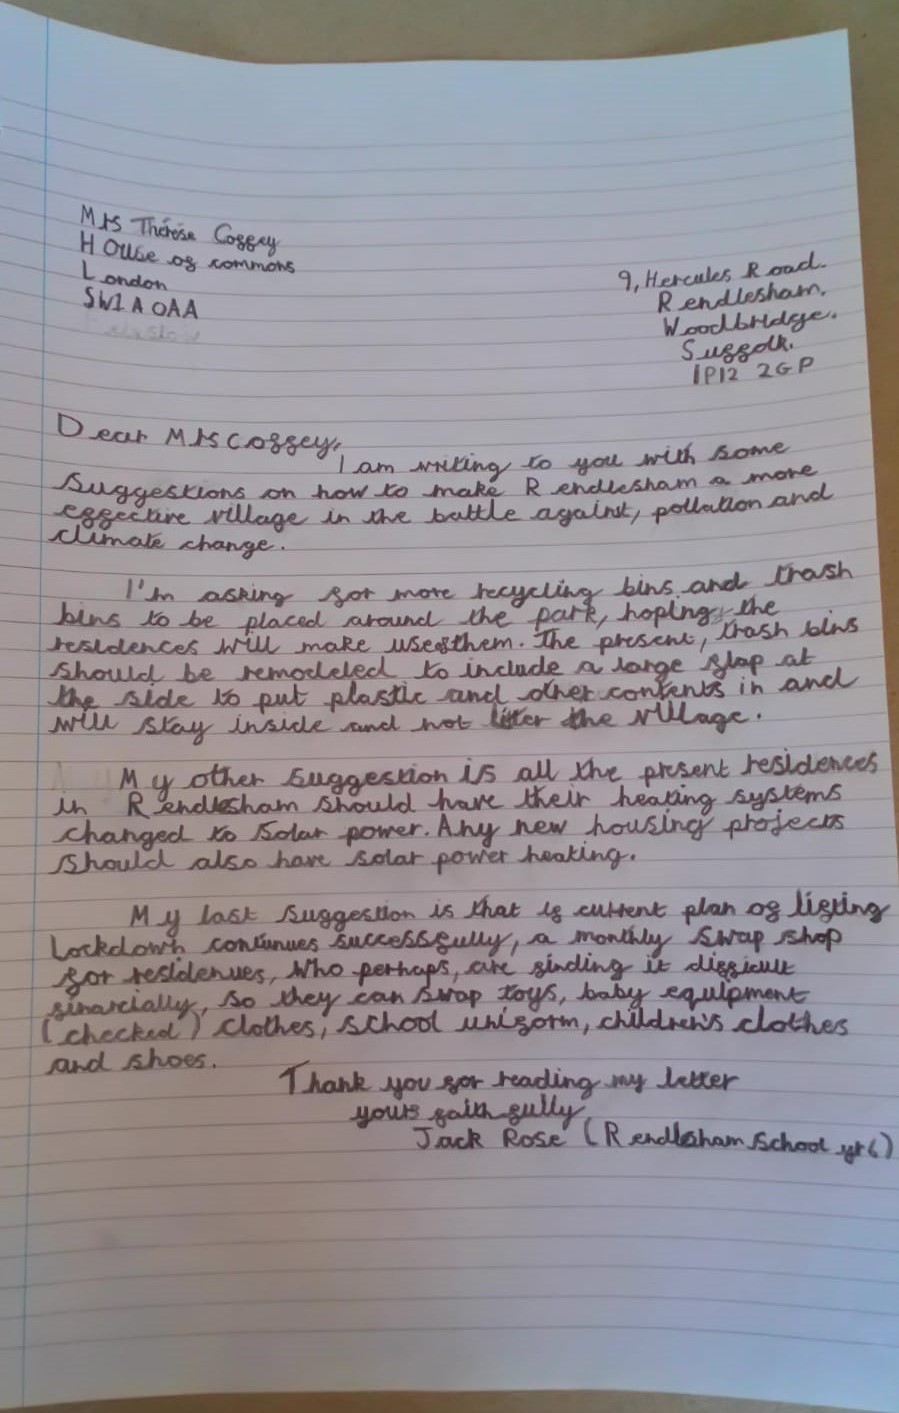 Mrs Thérèse Coffey
House of commons
London
SW1A 0AA
9, Hercules Road.
Rendlesham.
Woodbridge.
Suffolk.
IP12 2GP
Dear Mrs Coffey,
I am writing to you with some
suggestions on how to make Rendlesham a more
effective village in the battle against, pollation and
climate change.
I'm asking for more recycling bins and trash
bins to be placed around the park, hoping the
residences will make use of them. The present, trash bins
should be remodeled to include a large flap at
the side to put plastic and other contents in and
will stay inside and not litter the village.
My other suggestion is all the present residences
in Rendlesham should have their heating systems
changed to solar power. Any new housing projects
should also have solar power heating.
My last suggestion is that if current plan of lifting
Lockdown continues successfully, a monthly swap shop
for residences, who perhaps, are finding it difficult
financially, so they can swap toys, baby equipment
(checked) clothes, school uniform, children's clothes
and shoes.
Thank you for reading my letter
yours faithfully
Jack Rose (Rendlesham School yr6)